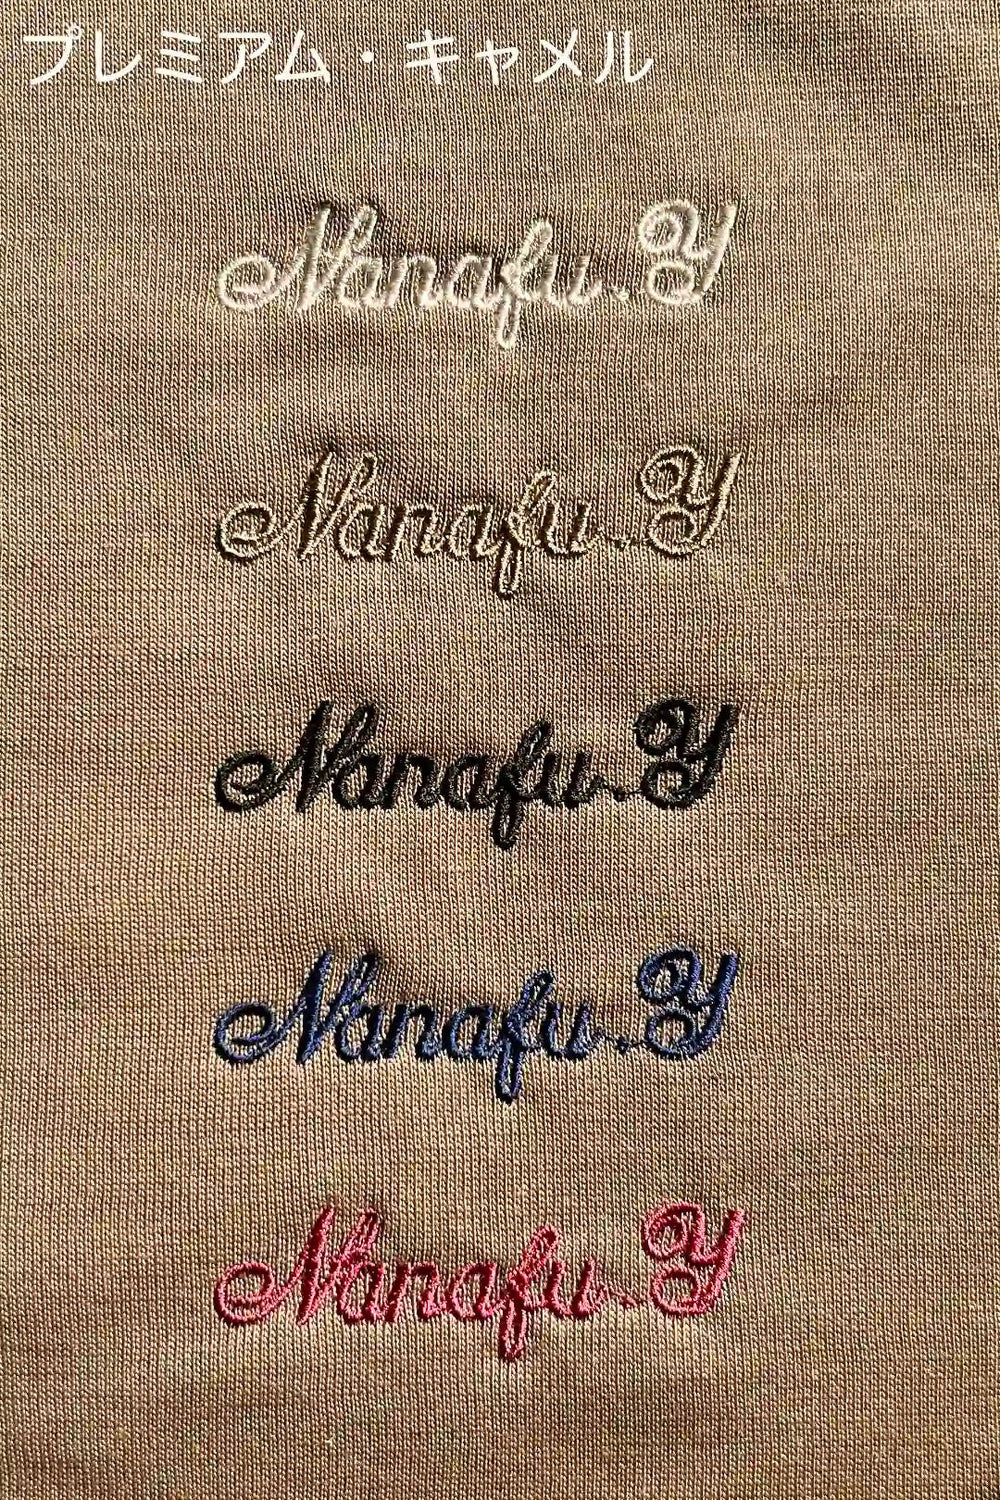 プレミアム・キャメル
Nanafu.Y
Nanafu.Y
Nanafu.Y
Nanafu.Y
Nanafu.Y